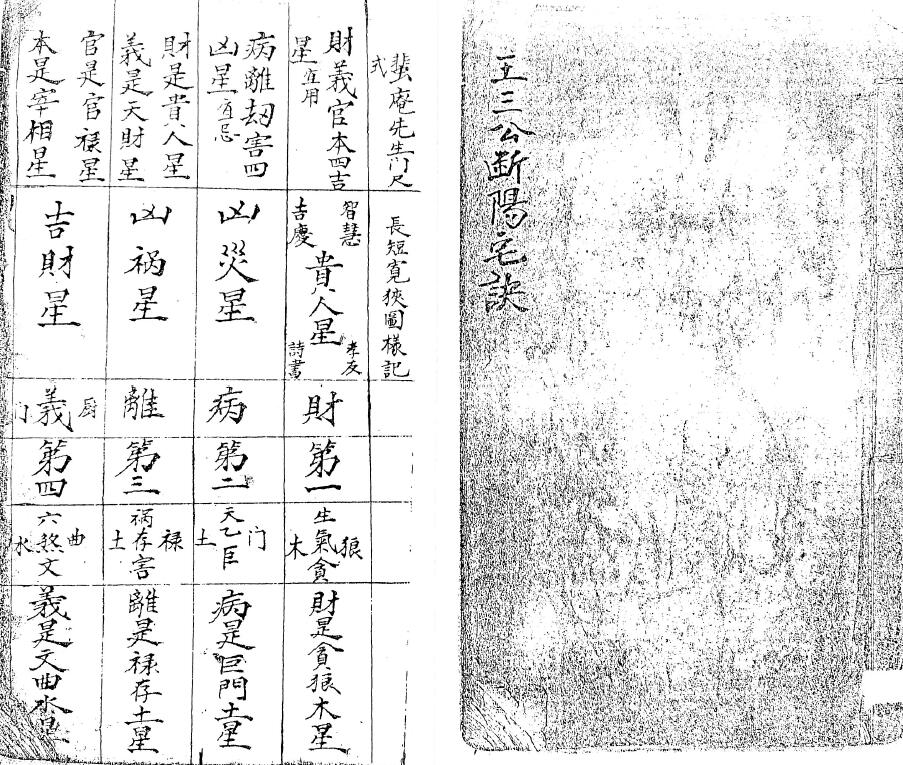 王三公断陽宅訣
蜚庵先生门尺式
長短寬狹圖樣記
財義官本四吉
星宜用
智慧
吉慶
貴人星
孝友
詩書
財
第一
生氣貪
狼
木
財是貪狼木星
病離劫害四
凶星宜忌
凶災星
病
第二
天乙巨
门
土
病是巨門土星
財是貴人星
義是天財星
凶祸星
離
第三
祸存害
禄
土
離是禄存土星
官是官禄星
本是宰相星
吉財星
厨
義
门
第四
六煞文
曲
水
義是文曲水星